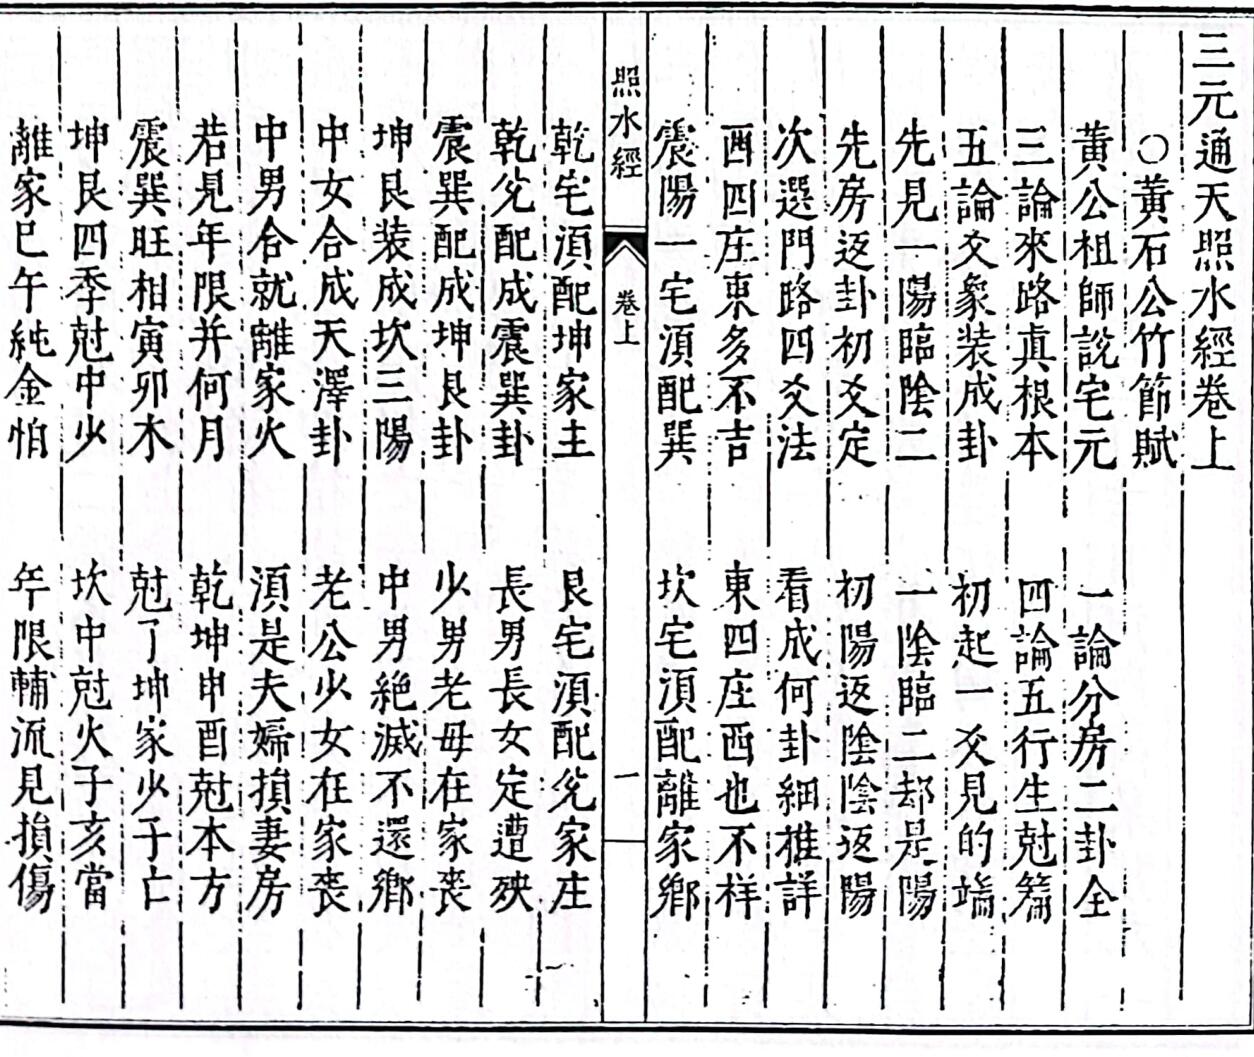 三元通天照水經卷上
○黃石公竹節賦
黃公祖師說宅元　一論分房二卦全
三論來路真根本　四論五行生尅篇
五論爻象裝成卦　初起一爻見的端
先見一陽臨陰二　一陰臨二却是陽
先房返卦初爻定　初陽返陰陰返陽
次選門路四爻法　看成何卦細推詳
西四庄東多不吉　東四庄西也不祥
震陽一宅湏配巽　坎宅湏配離家鄉
照水經　卷上　一
乾宅湏配坤家主　艮宅湏配兊家庄
乾兊配成震巽卦　長男長女定遭殃
震巽配成坤艮卦　少男老母在家丧
坤艮裝成坎三陽　中男絕滅不還鄉
中女合成天澤卦　老公少女在家丧
中男合就離家火　湏是夫婦損妻房
若見年限并何月　乾坤申酉尅本方
震巽旺相寅卯木　尅了坤家少子亡
坤艮四季尅中少　坎中尅火子亥當
離家巳午純金怕　年限輔流見損傷